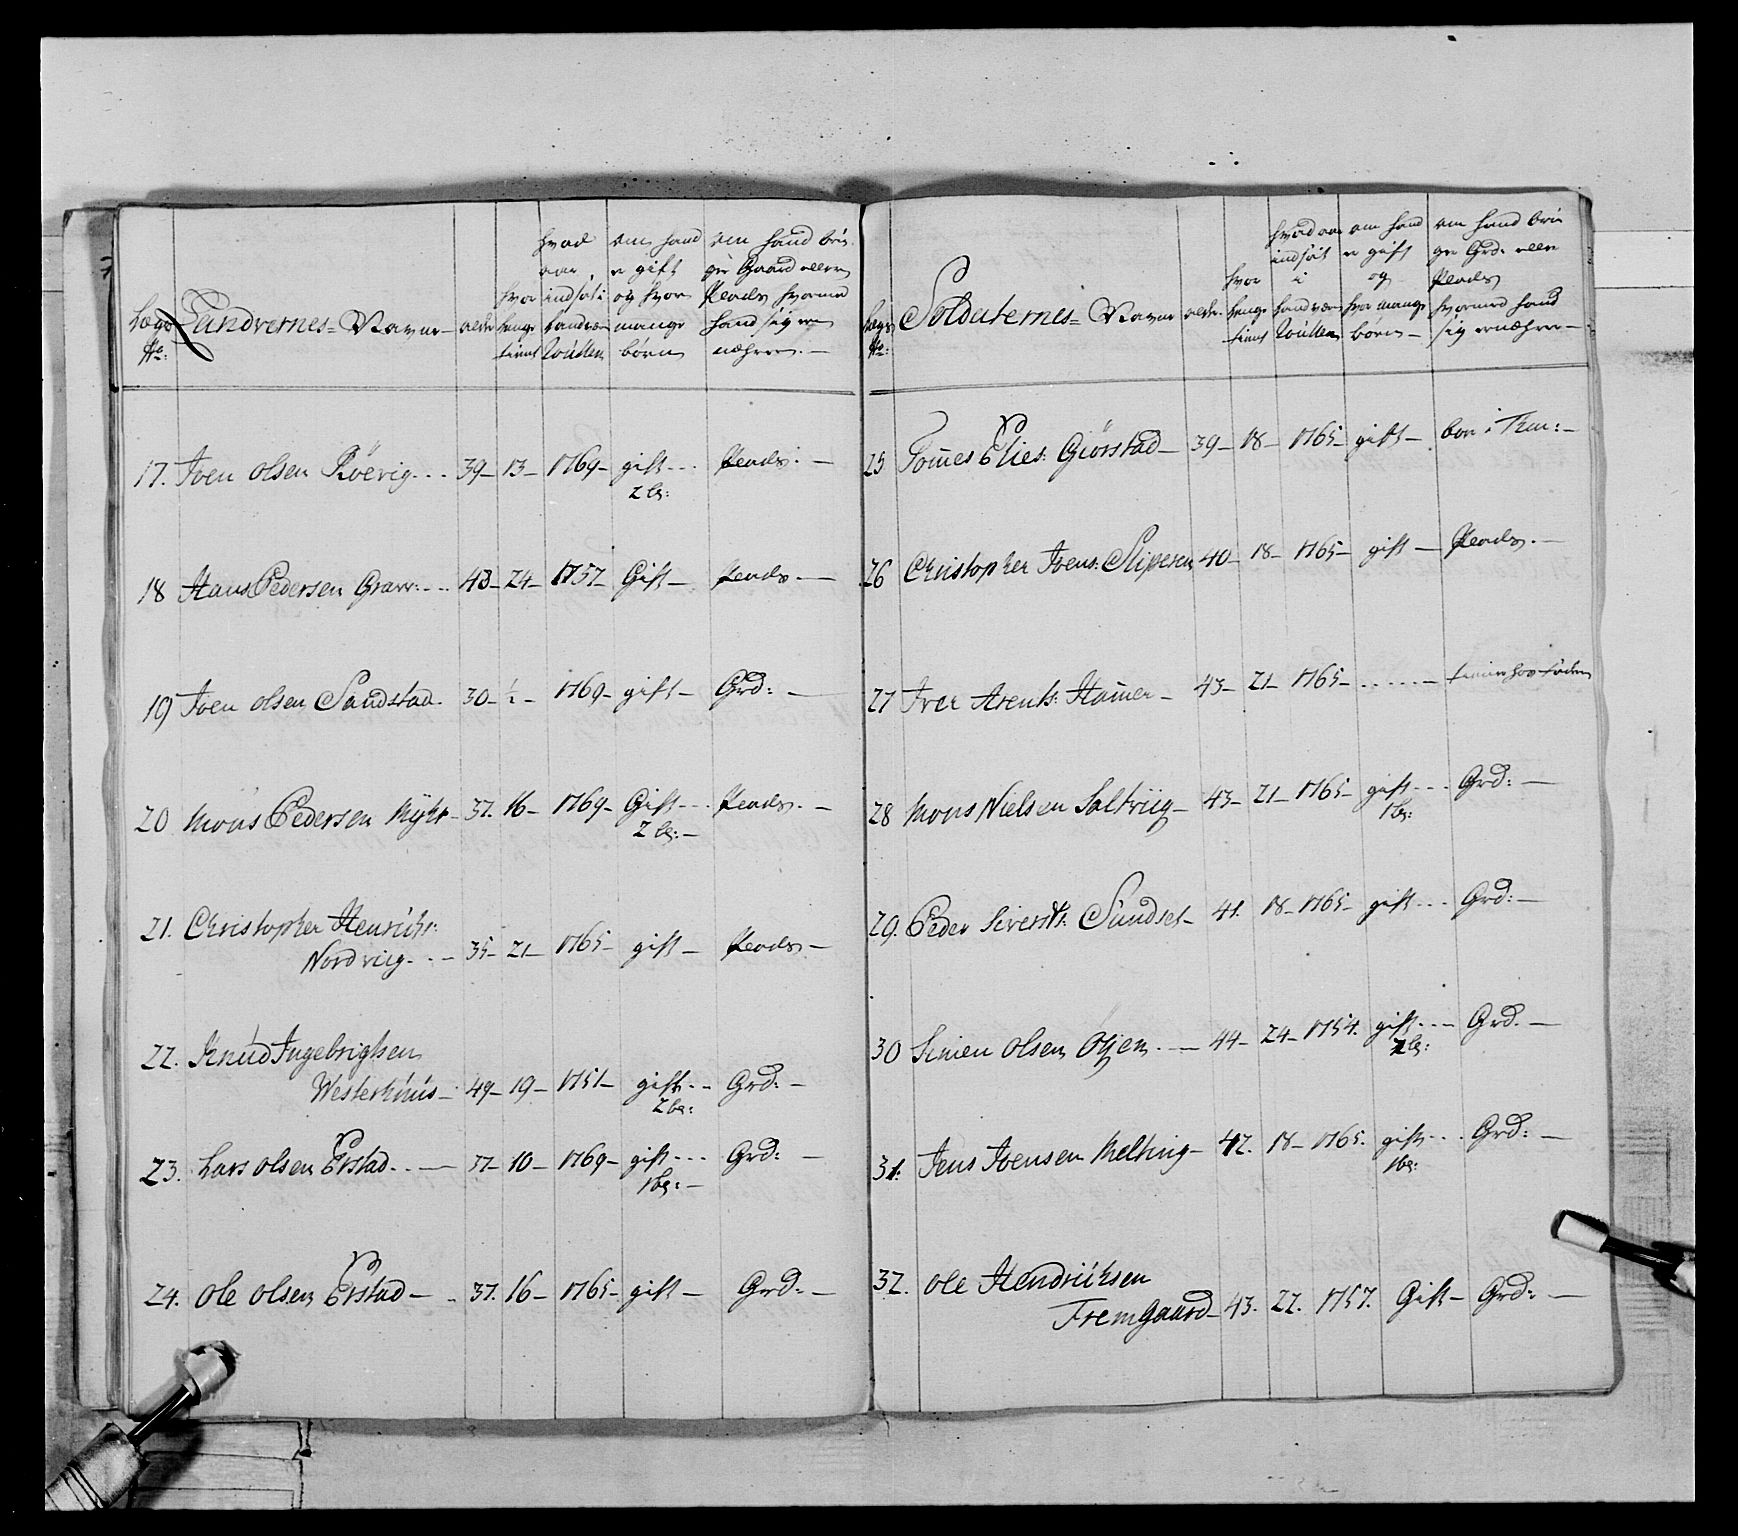 Lægs No:
Landvernes= Navne
alder
hvor længe tient
hvad aar indsat i Landværn Rullen
om hand er gift og hvor mange børn
om hand bru- ger Gaard eller Plads hvormed hand sig er næhrer. —
17. Joen Olsen Röevig... 39— 13— 1769— gift... Plads. —
2 bs:
18 Hans Pedersen Graw:... 43— 24— 1757 Gift— Plads. —
19 Joen Olsen Sandstad. 30— ½— 1769— gift— Grd: —
20 Mons Pedersen Myhr— 37. 16— 1769— Gift... Plads. —
2 bs: —
21. Christopher Henrichs:
Nordviig... — 35— 21— 1765— gift— Plads —
22. Knud Ingebrigtsen
Westerhuus— 49— 19— 1751— gift... Grd: —
2 bs:
23. Lars Olsen Erstad... — 37— 10— 1769— gift... Grd: —
1 bs: —
24. Ole Olsen Erstad— . 37. 16— 1765— gift— Grd: —
Lægs No:
Soldaternes= Navne
alder.
hvor længe tient
hvad aar indsat i Landværn Rullen
om hand er gift og hvor mange børn—
om hand bru- ger Grd: eller Plads hvormed hand sig ernæhrer—
25 Tomes Elies: Giörstad— 39— 18— 1765— gift— boe i —
26 Christopher Joens: Slipern 40— 18— 1765— gift— Plads. —
27 Iver Arents: Hamer— 43— 21— 1765— ......— tiener hos
28 Mons Nielsen Saltviig— 43— 21— 1765— gift... Grd: —
1 bs:
29. Peder Siverts: Sundset— 41. 18— 1765— gift... Grd: —
30 Simen Olsen Öyen. — 44— 24— 1754. gift... — Grd. —
2 bs:
31. Jens Joensen Melting— 42. 18— 1765. gift... Grd: —
1 bs:
32. Ole Hendrichsen
Fremgaard— 43. 22. 1757. Gift— Grd: —